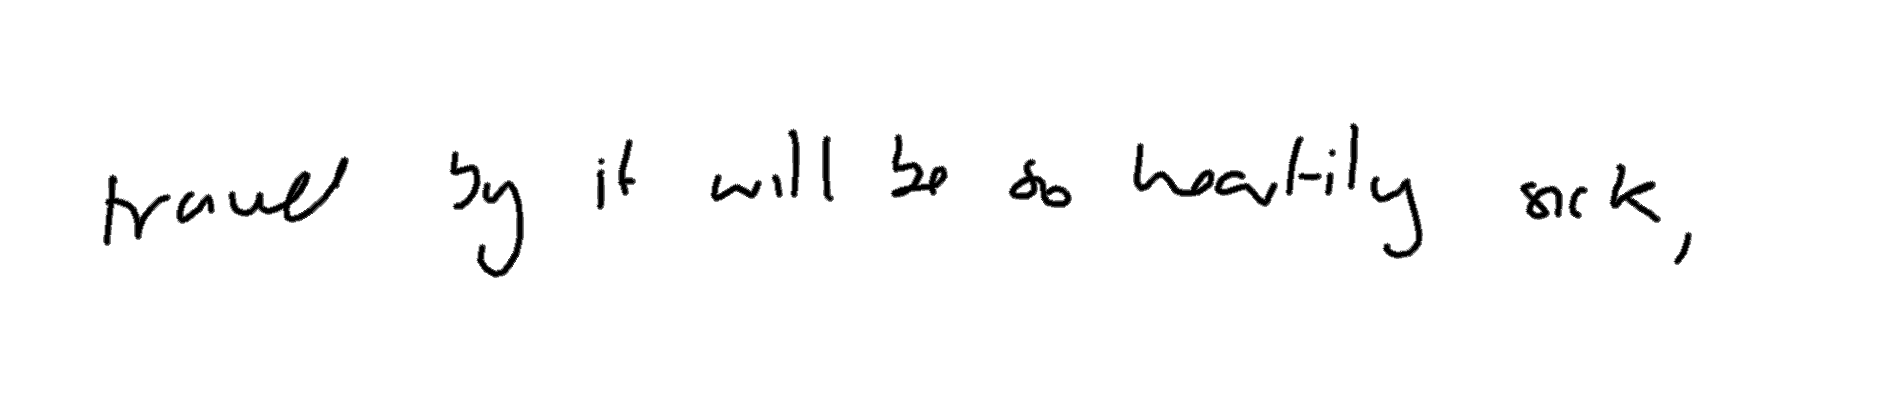 travel by it will be so heartily sick,